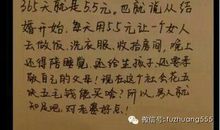 365天就是5.5元。也就说从结
婚开始，每天用5.5元让一个女人
去做饭、洗衣服、收拾房间，晚上
还得陪睡觉，还给生孩子，还要孝
敬自己的父母！现在这个社会花五
块五毛钱能买啥？所以，男人能
知足吧，对老婆好点！
微信号：fuzhuang555